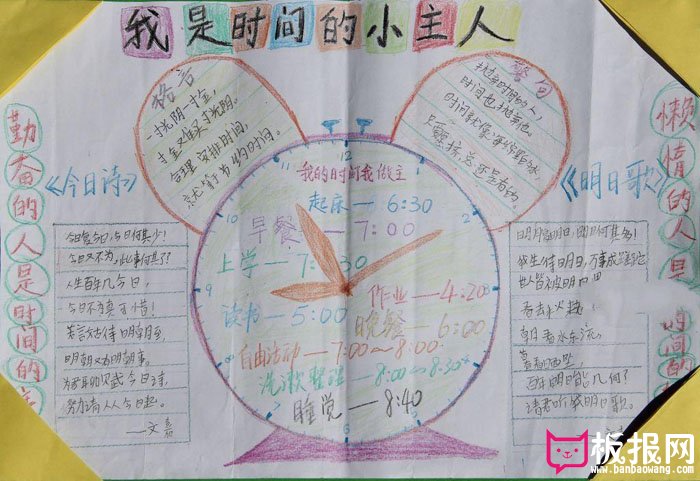 我是时间的小主人
格言
一寸光阴一寸金,
寸金难买寸光阴。
合理安排时间,
就等于节约时间。
警句
抛弃时间的人,
时间也抛弃他。
时间就像海绵里的水,
只要挤总还是有的。
勤奋的人是时间的主
懒惰的人是
时间的
《今日诗》
今日复今日,今日何其少!
今日又不为,此事何其了?
人生百年几今日,
今日不为真可惜!
若言姑待明朝至,
明朝又有明朝事。
为君聊赋今日诗,
努力请从今日起。
——文嘉
《明日歌》
明日复明日,明日何其多!
我生待明日,万事成蹉跎
世人皆被明日
朝看水东流,
暮看日西坠,
百年明日能几何?
请君听我明日歌。
12
我的时间我做主
起床—6:30
早餐—7:00
上学—7:30
作业—4:20
读书—5:00
晚餐—6:00
自由活动—7:00~8:00
洗漱整理—8:00~8:30
睡觉—8:40
10
2
板报网
www.banbaowang.com